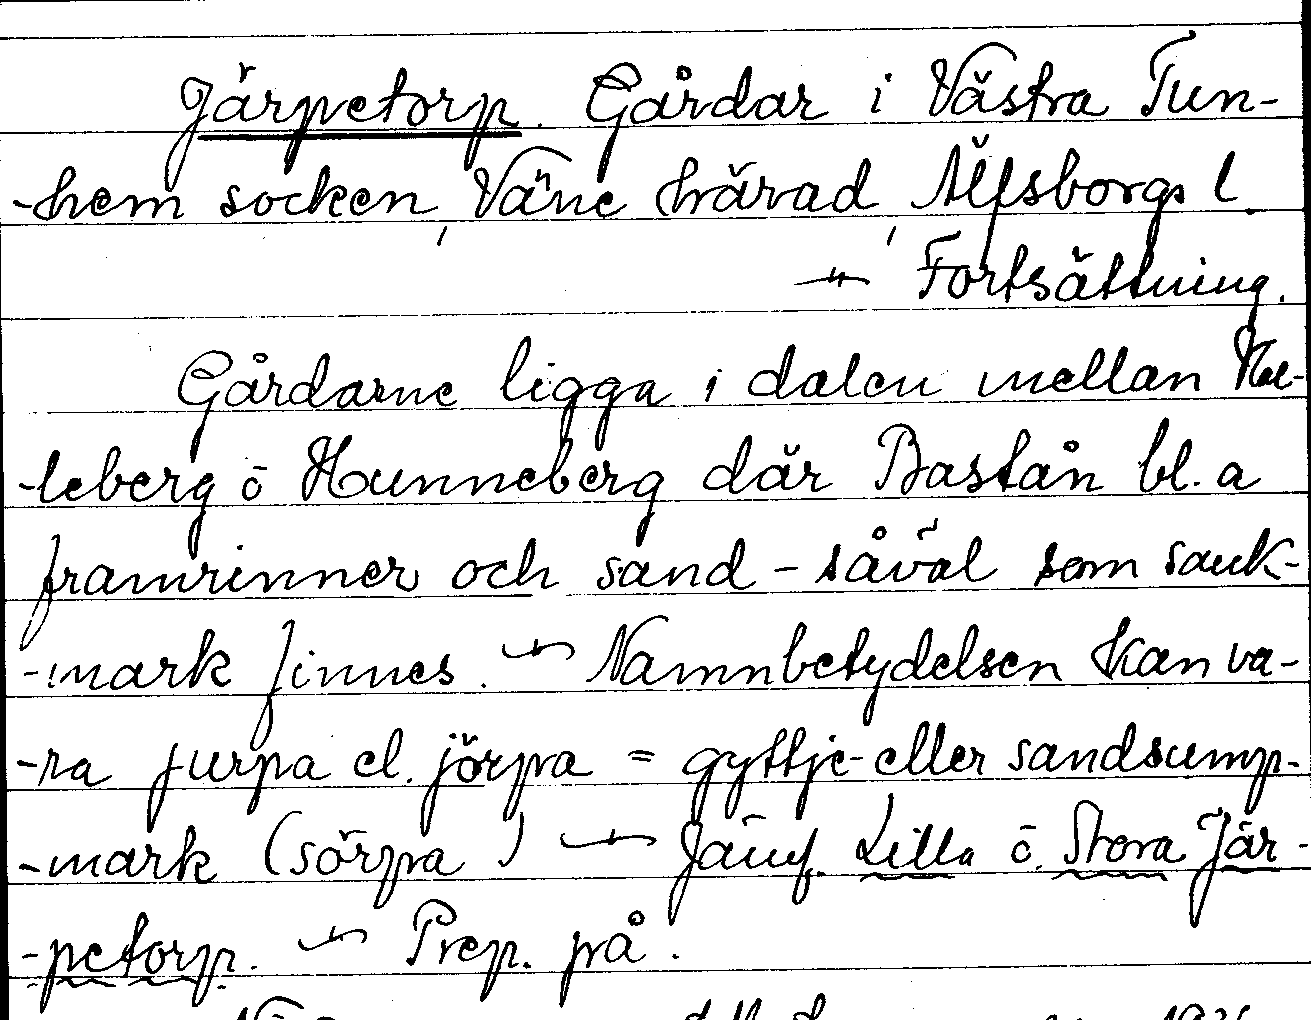 Järpetorp. Gårdar i Västra Tun-
-hem socken, Väne härad, Älfsborgs l.
— Fortsättning.
Gårdarne ligga i dalen mellan Hal-
-leberg o Hunneberg där Bastån bl. a
framrinner och sand - såväl som sank-
-mark finnes. — Namnbetydelsen kan va-
-ra jurpa el. jörpa = gyttje- eller sandsump-
-mark (sörpa) — Jämf. Lilla o. Stora Jär-
-petorp. — Prep. på.